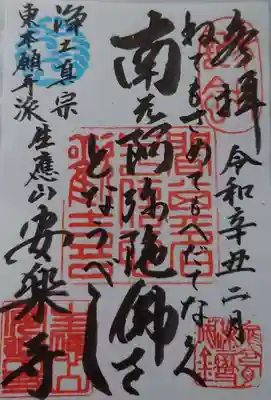 参拝
令和辛丑二月
ねてもさめてもへだてなく
南无阿弥陀佛を
となうべし
浄土真宗
東本願寺派 生應山 安楽寺